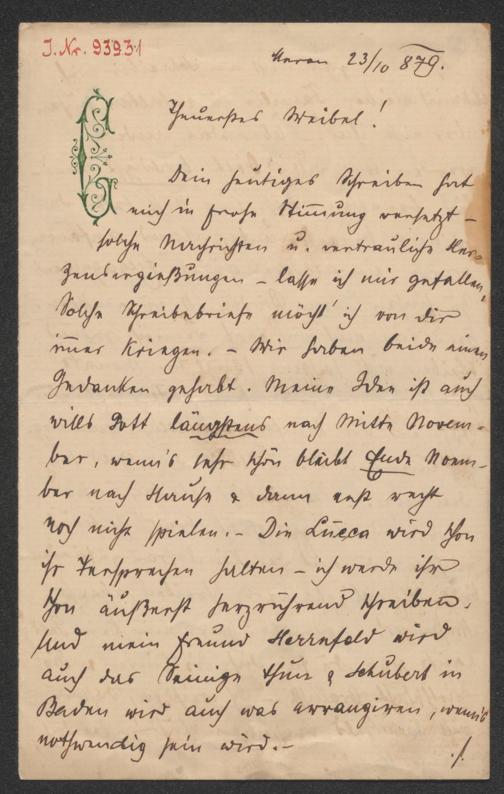 J. Nr. 93931
Meran 23/10 879.
Theuerstes Weibel!
Dein heutiges Schreiben hat
mich in frohe Stimmung versetzt –
solche Nachrichten u. vertrauliche Her-
zensergießungen – lasse ich mir gefallen,
Solche Schreibebriefe möcht' ich von dir
immer kriegen. – Wir haben beide einen
Gedanken gehabt. Meine Idee ist auch
wills Gott längstens nach Mitte Novem-
ber, wenn's sehr schön bleibt Ende Novem-
ber nach Hause & dann erst recht
noch nicht spielen. – Die Lucca wird schon
ihr Versprechen halten – ich werde ihr
schon äußerst herzrührend schreiben.
Und mein Freund Herrnfeld wird
auch das Seinige thun & Schubert in
Baden wird auch was arrangiren, wenn's
nothwendig sein wird. –
./.